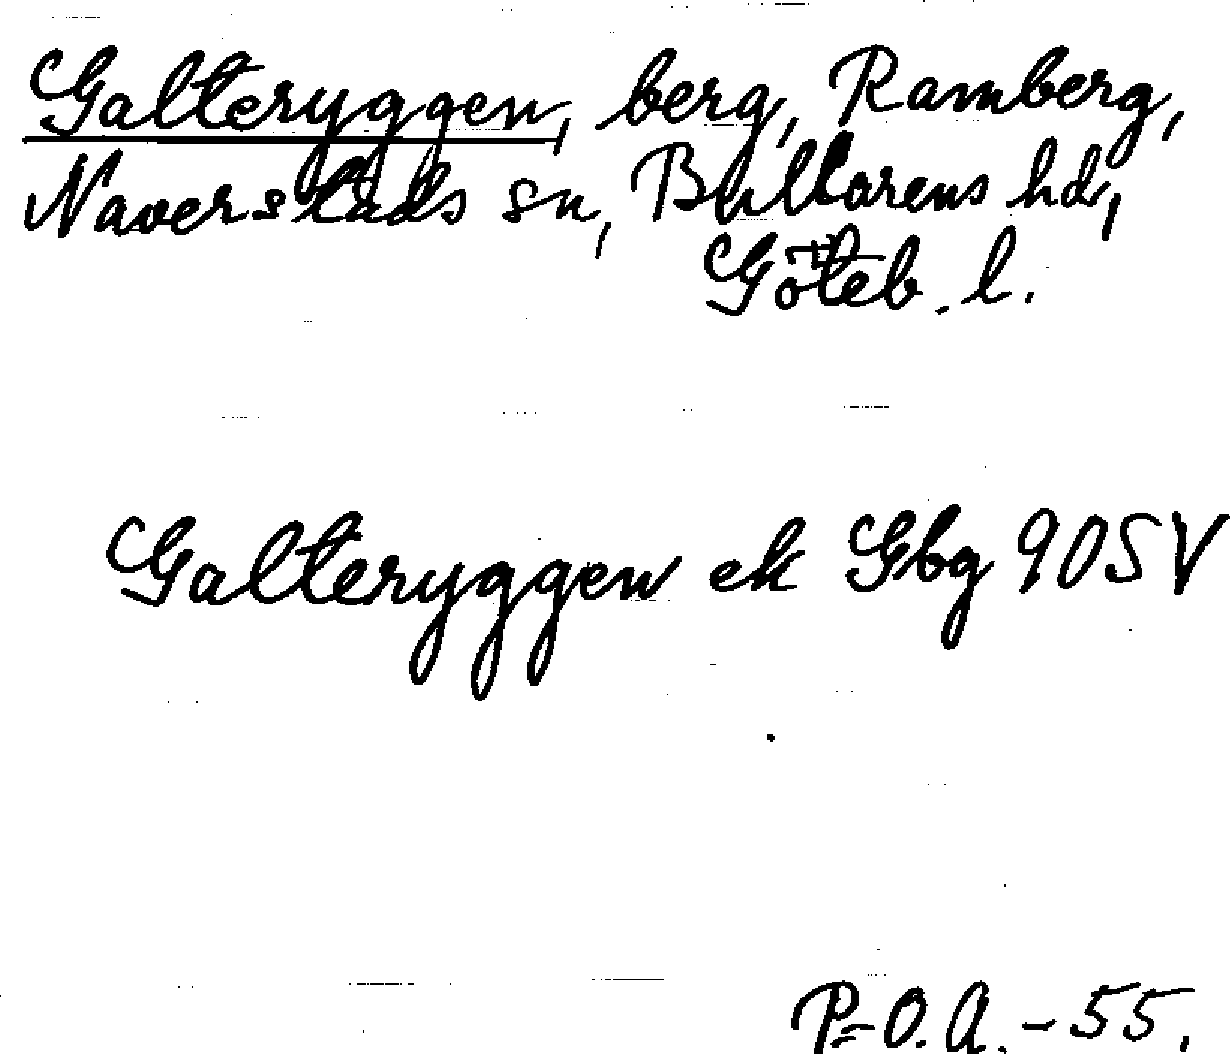 Galteryggen, berg, Ramberg,
Naverstads sn, Bullarens hd,
Göteb. l.
Galteryggen ek Gbg 90SV
P-O.A. -55.